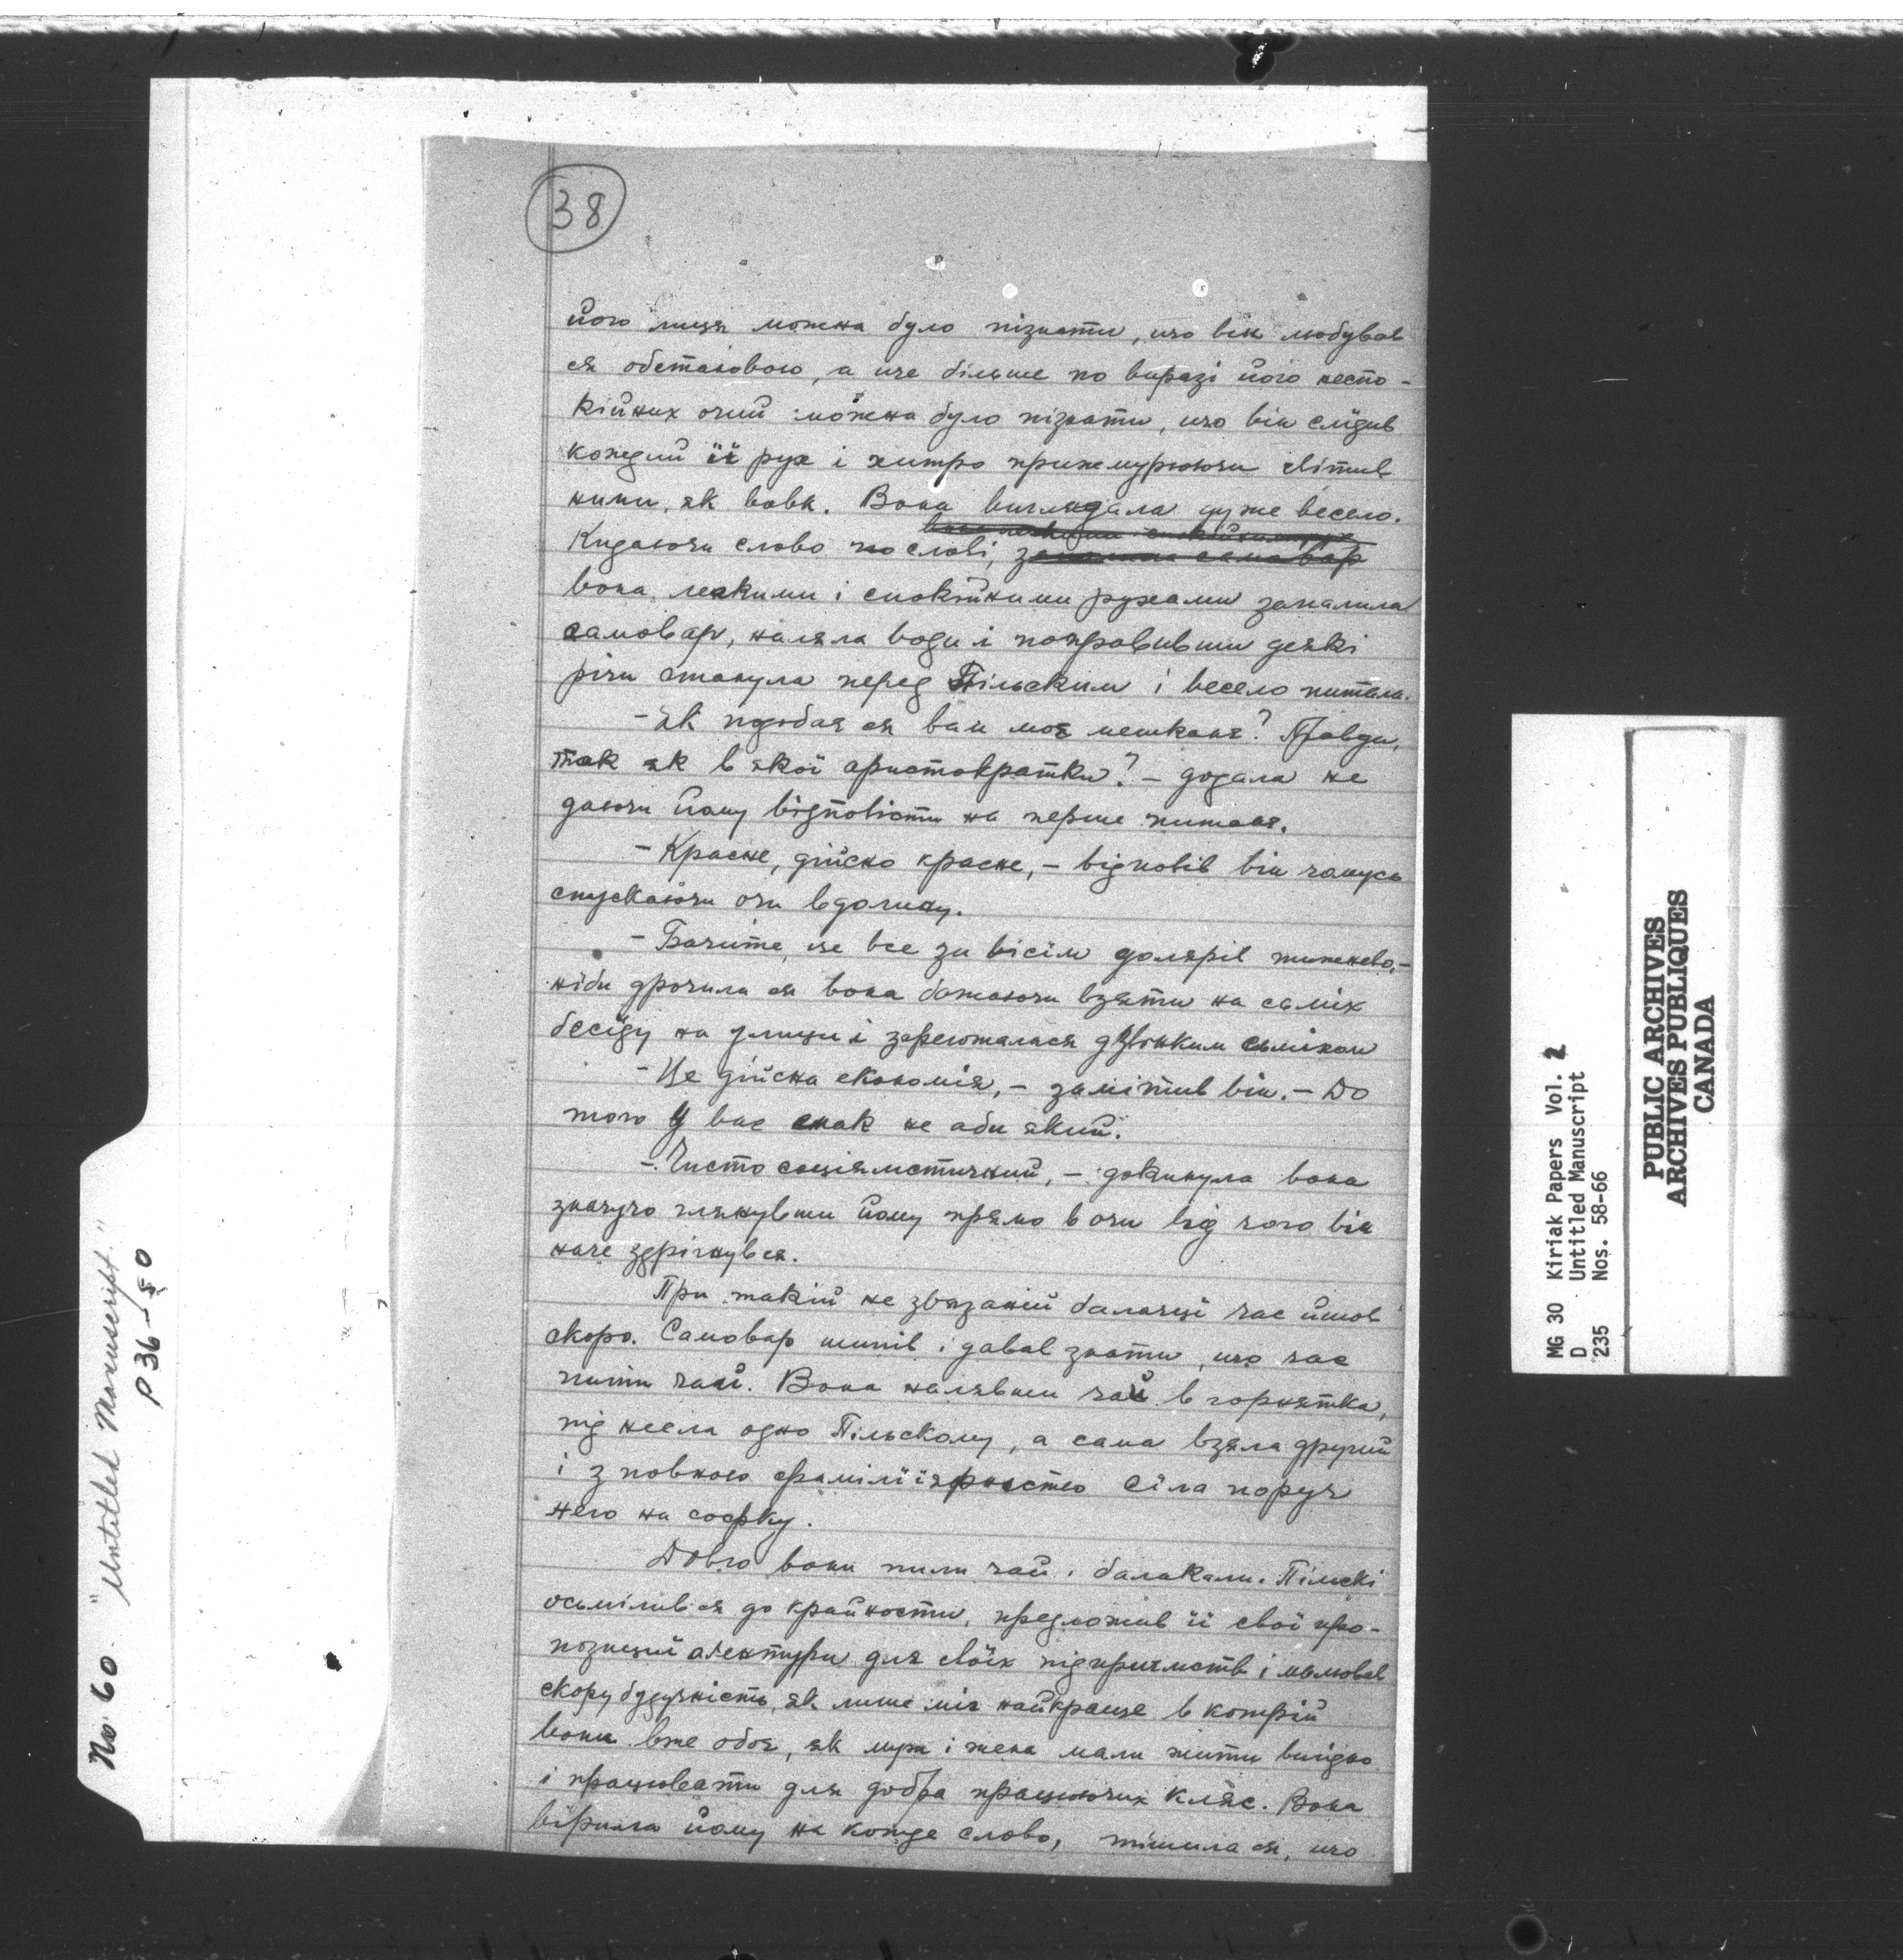 38
його лиця можна було пізнати, що він любував
ся обстановою, а ще більше по виразі його неспо-
кійних очий можна було пізнати, що він слїдив
кождий її рух і хитро прижмурюючи світив
ними, як вовк. Вона виглядала дуже весело.
Кидаючи слово по слові,
вона легкими і спокійними рухами запалила
самовар, наляла води і поправивши деякі
річи станула перед Пільским і весело питала.
- Як подобає ся вам моє мешканє? Правди,
так як в якої аристократки? - додала не
даючи йому відповісти на перше питанє.
- Красне, дійсно красне, - відповів він чомусь
спускаючи очи вдолину.
- Бачите, це все за вісїм долярів тижнево, -
ніби дрочила ся вона бажаючи взяти на сьміх
бесїду на улици і зареготалася дзвінким сьміхом
- Це дійсна економія, - замітив він. - До
того у вас смак не аби який.
- Чисто соціялістичний, - докинула вона
значучо глянувши йому прямо в очи від чого він
наче здрігнувся.
При такій не звязаній балачці час йшов
скоро. Самовар шипів і давав знати, що час
пити чай. Вона налявши чай в горнятка,
під несла одно Пільскому, а сама взяла другий
і з повною фамілїярностю сїла поруч
него на софку.
Довго вони пили чай і балакали. Пільскі
осьмілив ся до крайности, предложив її свої про-
позициї агентури для своїх підприємств і малював
скору будучність, як лише міг найкраще в котрій
вони вже обоє, як муж і жена мали жити вигідно
і працювати для добра працюючих кляс. Вона
вірила йому на кожде слово, тішила ся, що
No. 60 "Untitled Manuscript."
P 36-50
MG 30 Kiriak Papers Vol. 2
D Untitled Manuscript
235 Nos. 58-66
PUBLIC ARCHIVES
ARCHIVES PUBLIQUES
CANADA